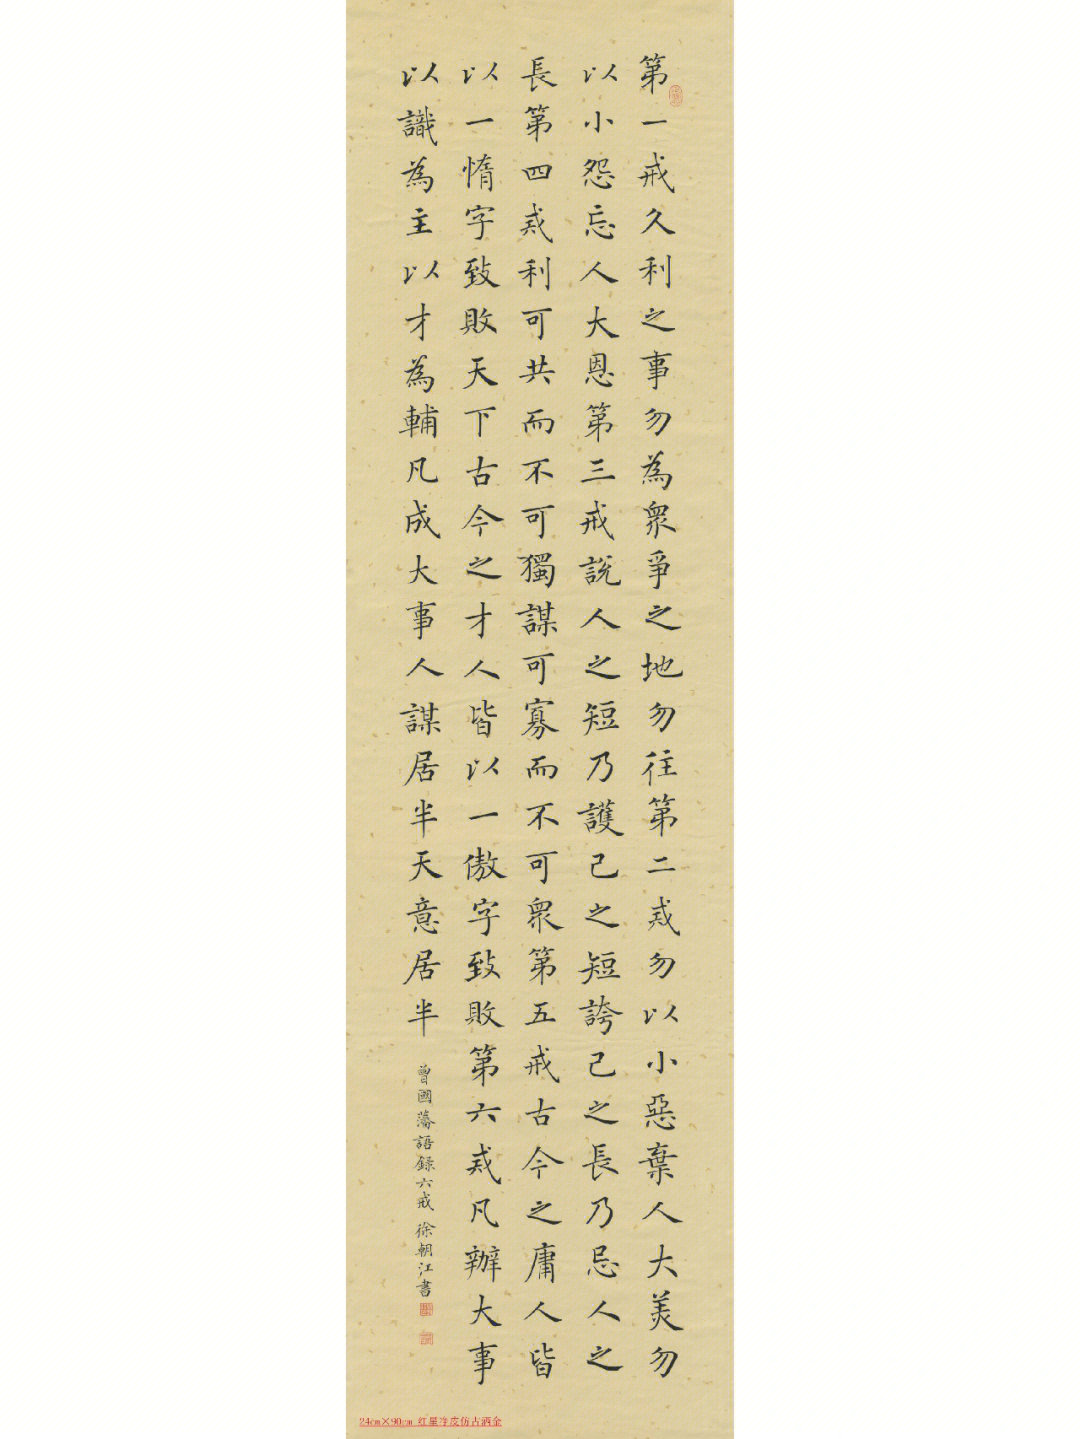 第一戒久利之事勿為衆爭之地勿往第二戒勿以小惡棄人大美勿
以小怨忘人大恩第三戒說人之短乃護己之短誇己之長乃忌人之
長第四戒利可共而不可獨謀可寡而不可衆第五戒古今之庸人皆
以一惰字致敗天下古今之才人皆以一傲字致敗第六戒凡辦大事
以識為主以才為輔凡成大事人謀居半天意居半
曾國藩語録六戒 徐朝江書
24cm×90cm 红星净皮仿古洒金